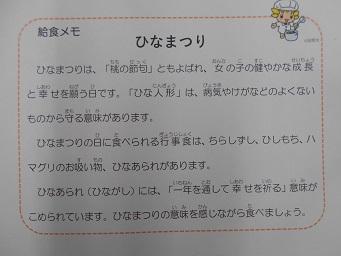 給食メモ
ひなまつり
ひなまつりは、「桃の節句」ともよばれ、女の子の健やかな成長
と幸せを願う日です。「ひな人形」は、病気やけがなどのよくない
ものから守る意味があります。
ひなまつりの日に食べられる行事食は、ちらしずし、ひしもち、ハ
マグリのお吸い物、ひなあられがあります。
ひなあられ（ひながし）には、「一年を通して幸せを祈る」意味が
こめられています。ひなまつりの意味を感じながら食べましょう。